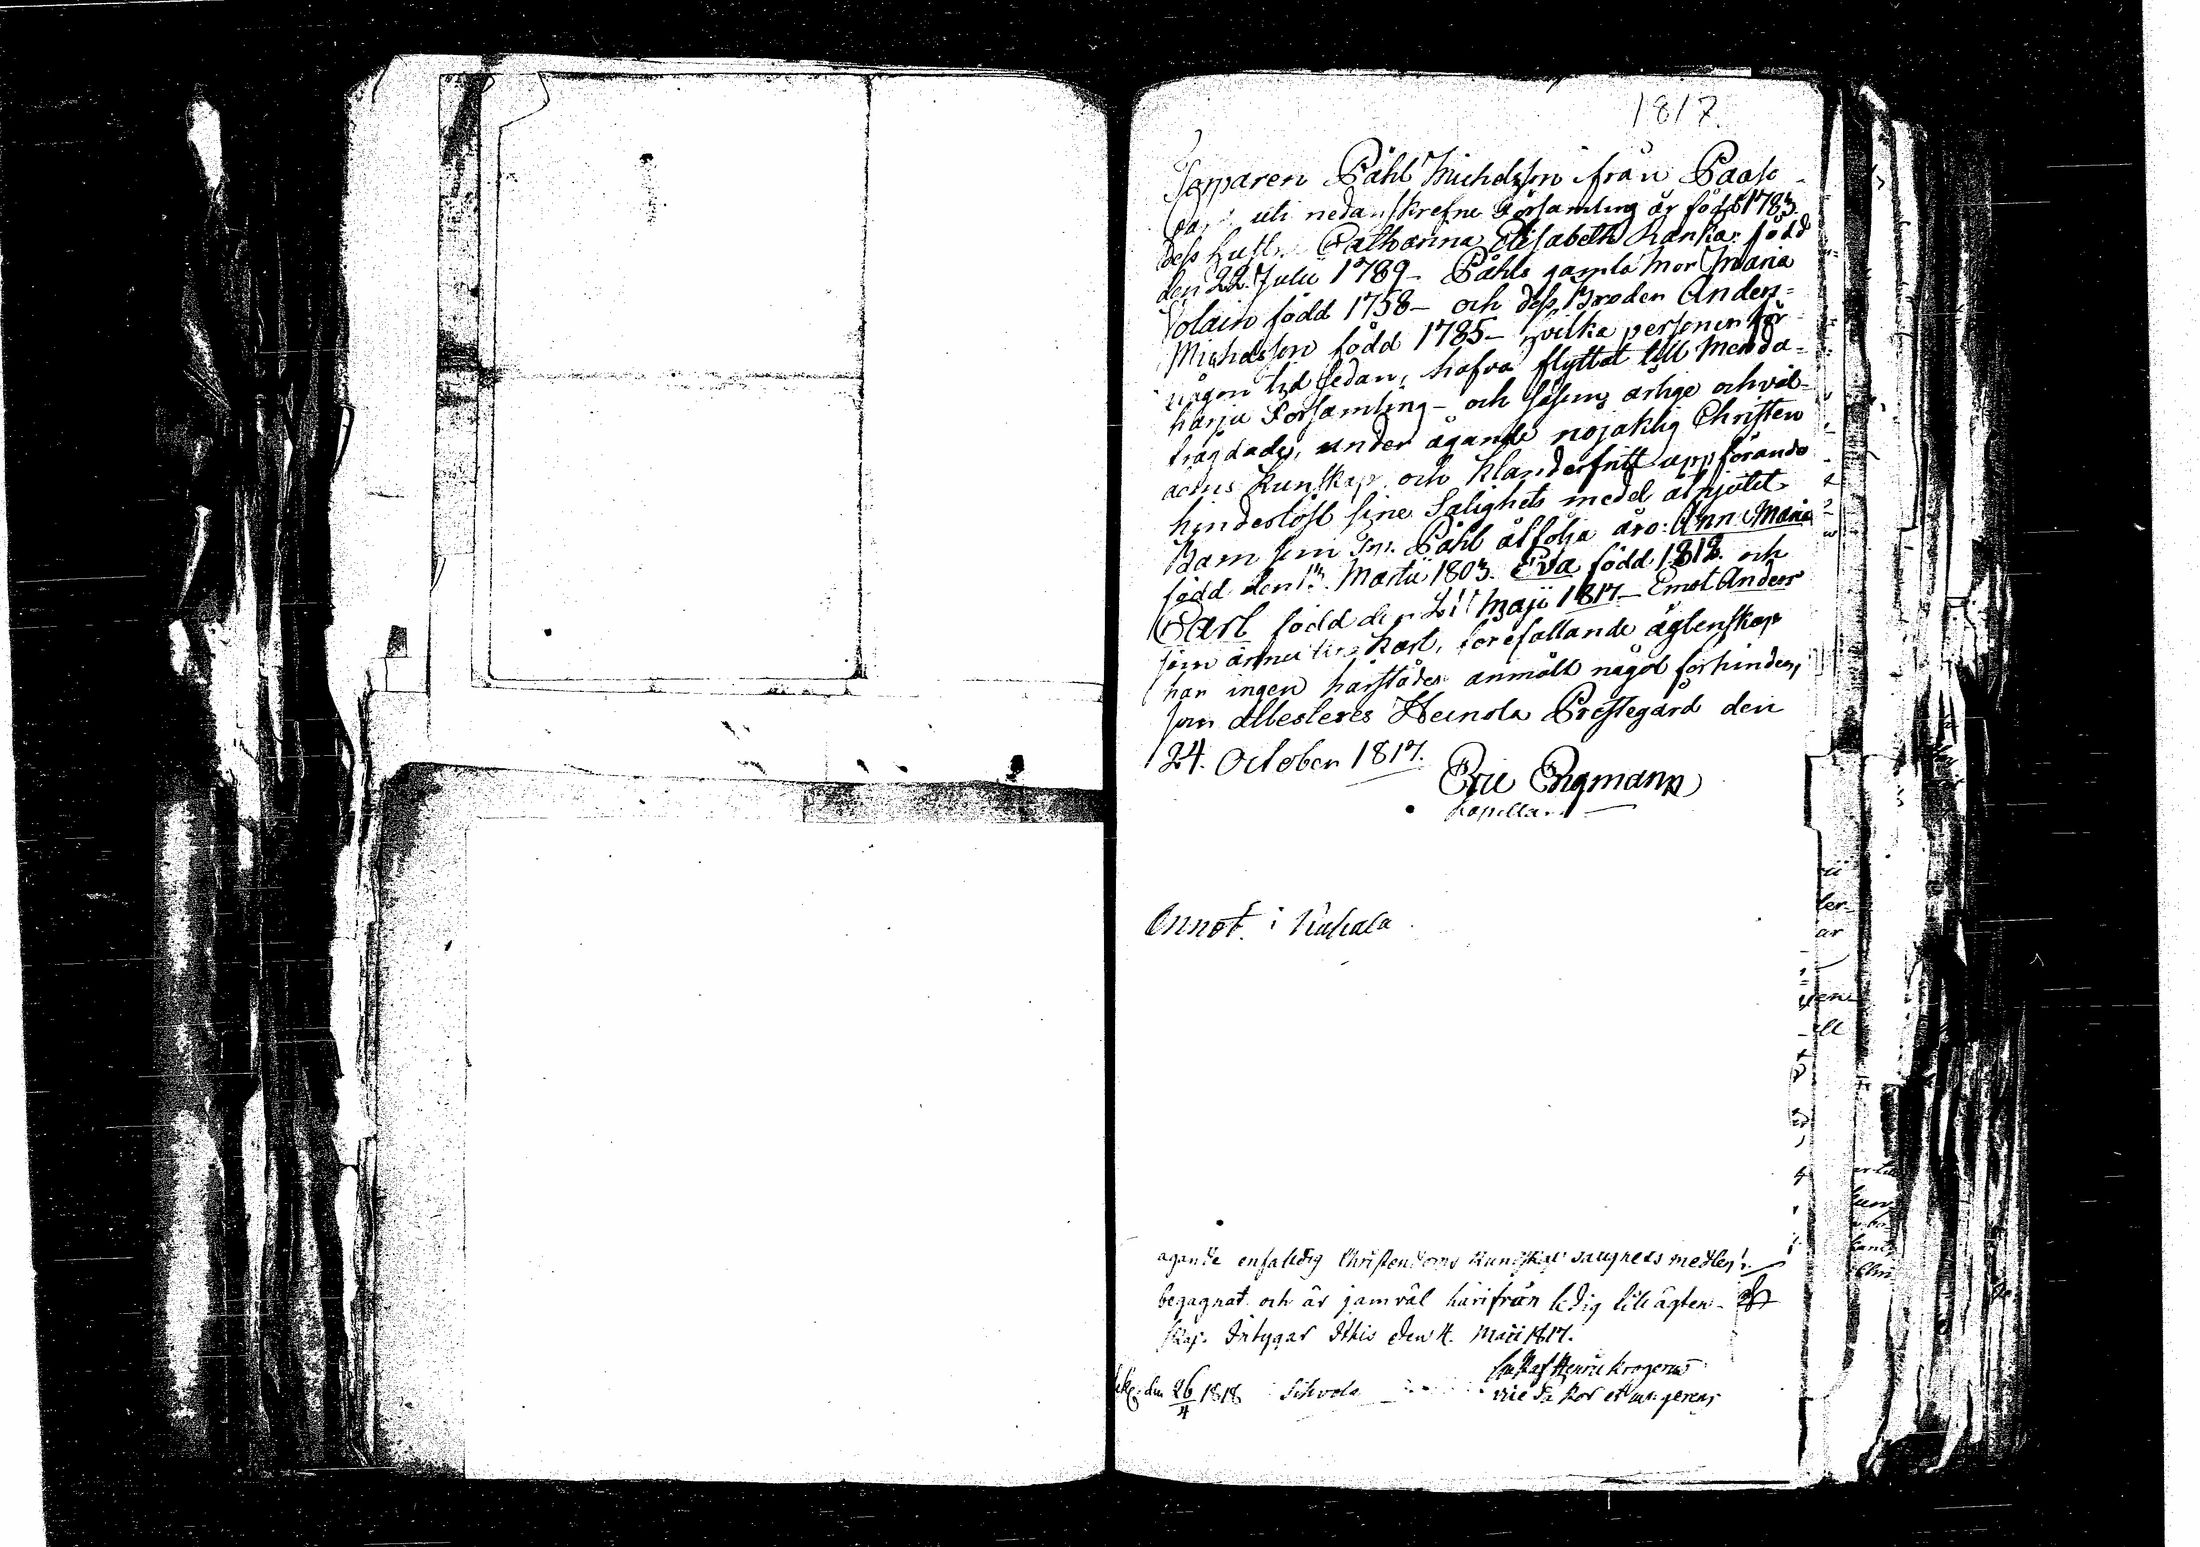 1817.
Påhl Michelsson från Paaso
uti nedanskrefne Församling är född 1783.
dess hustr. Catharina Elisabeth Ranka: född
den 22. Julii 1789 - Påhls gamla Mor Maria
Volain född 1758 - och dess Broder Anders
Michelsson född 1785 - hvilka personer för
någon tid sedan, hafva flyttat till Mända=
harju Församling - och såsom ärlige och väl=
frägdade, under ägande nöjaktig Christen
doms kunskap och klanderfritt uppförande
hinderlöst sine Salighets medel åtnjutit.
Barn som Påhl åtfölja äro: Ann Maria
född den Martii 1803. Eva född 1812. och
Carl född den 21 Maji 1817 - Emot Anders
som ännu fins kost, förefallande ägtenskap
har ingen härstädes anmält något förhinder,
som attesteres Heinola Prestegård den
24. October 1817.
Eric Engmann
Kapellan
Annot. i Kuhala
ägande enfaldig Christendoms kundskap salighets medlen
begagnat och är jämväl härifrån ledig till ägten-
skap. Intygar Ithis den 4. Maii 1817.
Gustaf Henric Krogerus
den 26/4 1818